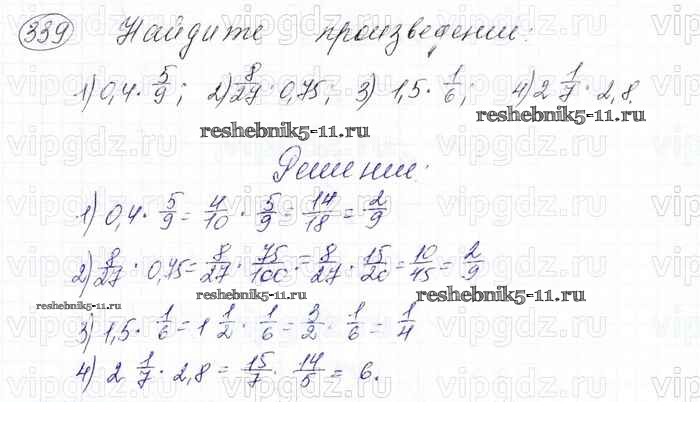 339 Найдите произведение:
1) 0,4 · 5/9; 2) 8/27 · 0,75; 3) 1,5 · 1/6; 4) 2 1/7 · 2,8.
reshebnik5-11.ru reshebnik5-11.ru
Решение.
1) 0,4 · 5/9 = 4/10 · 5/9 = 14/18 = 2/9
2) 8/27 · 0,75 = 8/27 · 75/100 = 8/27 · 15/20 = 10/45 = 2/9
reshebnik5-11.ru reshebnik5-11.ru reshebnik5-11.ru
3) 1,5 · 1/6 = 1 1/2 · 1/6 = 3/2 · 1/6 = 1/4
4) 2 1/7 · 2,8 = 15/7 · 14/5 = 6.
vipgdz.ru